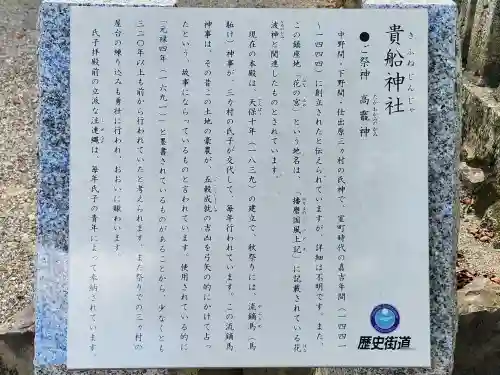 きふねじんじゃ
貴船神社
●ご祭神 高龗神
たかおかみのかみ
中野間・下野間・仕出原三ヶ村の氏神で、室町時代の嘉吉年間(一四四一
～一四四四)に創立されたと伝えられていますが、詳細は不明です。また、
この鎮座地「花の宮」という地名は、「播磨国風土記」に記載されている花
波神と関連したものとされています。
現在の本殿は、天保十年(一八三九)の建立で、秋祭りには、流鏑馬(馬
駈け)神事が、三ヶ村の氏子が交代して、毎年行われています。この流鏑馬
神事は、その昔この土地の豪農が、五穀成就の吉凶を弓矢の的にかけて占っ
たという、故事にならっているものと言われています。使用されている的に
「元禄四年(一六九一)」と墨書されているものがあることから、少なくとも
三二〇年以上も前から行われていたと考えられます。また祭りでの三ヶ村の
屋台の練り込みも勇壮に行われ、おおいに賑わいます。
氏子拝殿前の立派な注連縄は、毎年氏子の青年によって奉納されています。
歴史街道